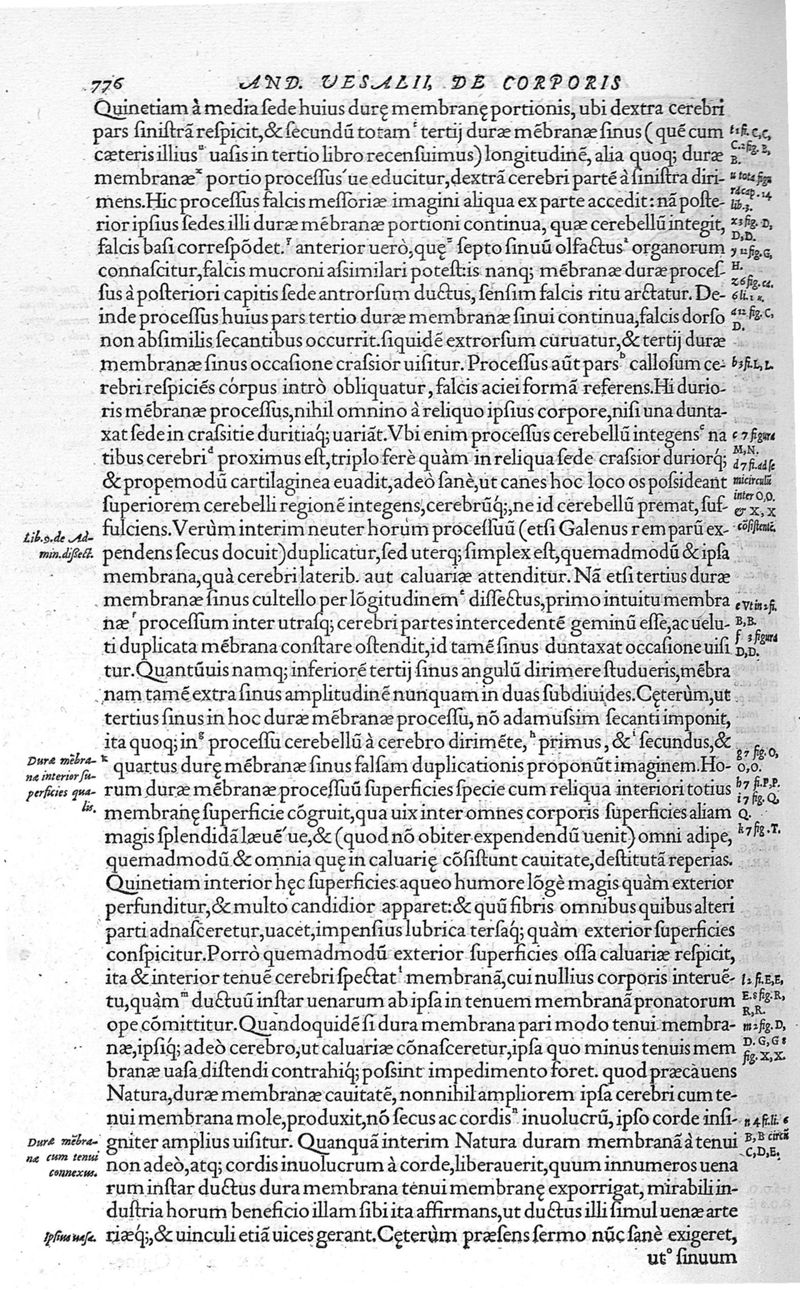 776 AND. VESALII, DE CORPORIS
Quinetiam à media sede huius durę membranę portionis, ubi dextra cerebri
pars sinistrã respicit, & secundũ totamᵗ tertij duræ mẽbranæ sinus (quẽ cum
cæteris illiusᵘ uasis in tertio libro recensuimus) longitudinẽ, alia quoq; duræ
membranæˣ portio processus´ue educitur, dextrã cerebri partẽ à sinistra diri-
mens. Hic processus falcis messoriæ imagini aliqua ex parte accedit: nã poste-
rior ipsius sedes illi duræ mẽbranæ portioni continua, quæ cerebellũ integit,
falcis basi correspõdet.ʸ anterior uerò, quęᶻ septo sinuũ olfactusᵃ organorum
connascitur, falcis mucroni assimilari potest: is nanq; mẽbranæ duræ proces-
sus à posteriori capitis sede antrorsum ductus, sensim falcis ritu arctatur. De-
inde processus huius pars tertio duræ membranæ sinui continua, falcis dorso
non absimilis secantibus occurrit. siquidẽ extrorsum curuatur, & tertij duræ
membranæ sinus occasione crassior uisitur. Processus aũt parsᵇ callosum ce-
rebri respiciẽs corpus intrò obliquatur, falcis aciei formã referens. Hi durio-
ris mẽbranæ processus, nihil omnino à reliquo ipsius corpore, nisi una dunta-
xat sede in crassitie duritiaq; uariãt. Vbi enim processus cerebellũ integensᶜ na
tibus cerebriᵈ proximus est, triplo ferè quàm in reliqua sede crassior duriorq;
& propemodũ cartilaginea euadit, adeò sanè, ut canes hoc loco os possideant
superiorem cerebelli regionẽ integens, cerebrũq;, ne id cerebellũ premat, suf-
fulciens. Verùm interim neuter horum processuũ (etsi Galenus rem parũ ex-
pendens secus docuit) duplicatur, sed uterq; simplex est, quemadmodũ & ipsa
membrana, quà cerebri laterib. aut caluariæ attenditur. Nã etsi tertius duræ
membranæ sinus cultello per lõgitudinemᵉ dissectus, primo intuitu membra
næᶠ processum inter utrasq; cerebri partes intercedentẽ geminũ esse, ac uelu-
ti duplicata mẽbrana constare ostendit, id tamẽ sinus duntaxat occasione uisi
tur. Quantũuis namq; inferiorẽ tertij sinus angulũ dirimere studueris, mẽbra
nam tamẽ extra sinus amplitudinẽ nunquam in duas subdiuides. Cęterùm, ut
tertius sinus in hoc duræ mẽbranæ processu, nõ adamussim secanti imponit,
ita quoq; inᵍ processu cerebellũ à cerebro dirimẽte,ʰ primus, &ⁱ secundus, &
ᵏ quartus durę mẽbranæ sinus falsam duplicationis proponũt imaginem. Ho-
rum duræ mẽbranæ processuũ superficies specie cum reliqua interiori totius
membranę superficie cõgruit, qua uix inter omnes corporis superficies aliam
magis splendidã læuẽ´ue, & (quod nõ obiter expendendũ uenit) omni adipe,
quemadmodũ & omnia quę in caluarię cõsistunt cauitate, destitutã reperias.
Quinetiam interior hęc superficies aqueo humore lõgè magis quàm exterior
perfunditur, & multo candidior apparet: & quũ fibris omnibus quibus alteri
parti adnasceretur, uacet, impensius lubrica tersaq; quàm exterior superficies
conspicitur. Porrò quemadmodũ exterior superficies ossa caluariæ respicit,
ita & interior tenuẽ cerebri spectatˡ membranã, cui nullius corporis interuẽ-
tu, quàmᵐ ductuũ instar uenarum ab ipsa in tenuem membranã pronatorum
ope cõmittitur. Quandoquidẽ si dura membrana pari modo tenui membra-
næ, ipsiq; adeò cerebro, ut caluariæ cõnasceretur, ipsa quo minus tenuis mem
branæ uasa, distendi contrahiq; possint impedimento foret. quod præcàuens
Natura, duræ membranæ cauitatẽ, nonnihil ampliorem ipsa cerebri cum te-
nui membrana mole, produxit, nõ secus ac cordisⁿ inuolucrũ, ipso corde insi-
gniter amplius uisitur. Quanquã interim Natura duram membranã à tenui
non adeò, atq; cordis inuolucrum à corde, liberauerit, quum innumeros uena
rum instar ductus dura membrana tenui membranę exporrigat, mirabili in-
dustria horum beneficio illam sibi ita affirmans, ut ductus illi simul uenæ arte
riæq;, & uinculi etiã uices gerant. Cęterùm præsens sermo nũc sanè exigeret,
utᵒ sinuum
Lib. 9. de Ad-
min. dissect.
Duræ mẽbra-
næ interior su-
perficies qua-
lis.
Duræ mẽbra-
næ cum tenui
connexus.
Ipsius uasa.
t 1 fi. C, C,
C. 2 fig. B,
B.
u tota figu
ra cap. 14
lib. 3.
x 3 fig. D,
D, D.
y 12 fig. G,
H.
z 6 fig. ca.
6 li. 1 x.
a 12 fig. C,
D.
b 3 fi. L, L.
c 7 figura
M, N.
d 7 fi. ad se
micirculũ
inter O, O.
& X, X
cõsistentẽ.
e Vt in 2 fi.
B, B.
f 3 figura
D, D.
g 7 fig. O,
O, O.
h 7 fi. P. P.
i 7 fig. Q,
Q.
k 7 fig. T.
l 2 fi. E, E,
E. 8 fig. R,
R, R.
m 2 fig. D,
D. G, G 8
fig. X, X.
n 4 fi. li. 6
B, B circũ
C, D, E.